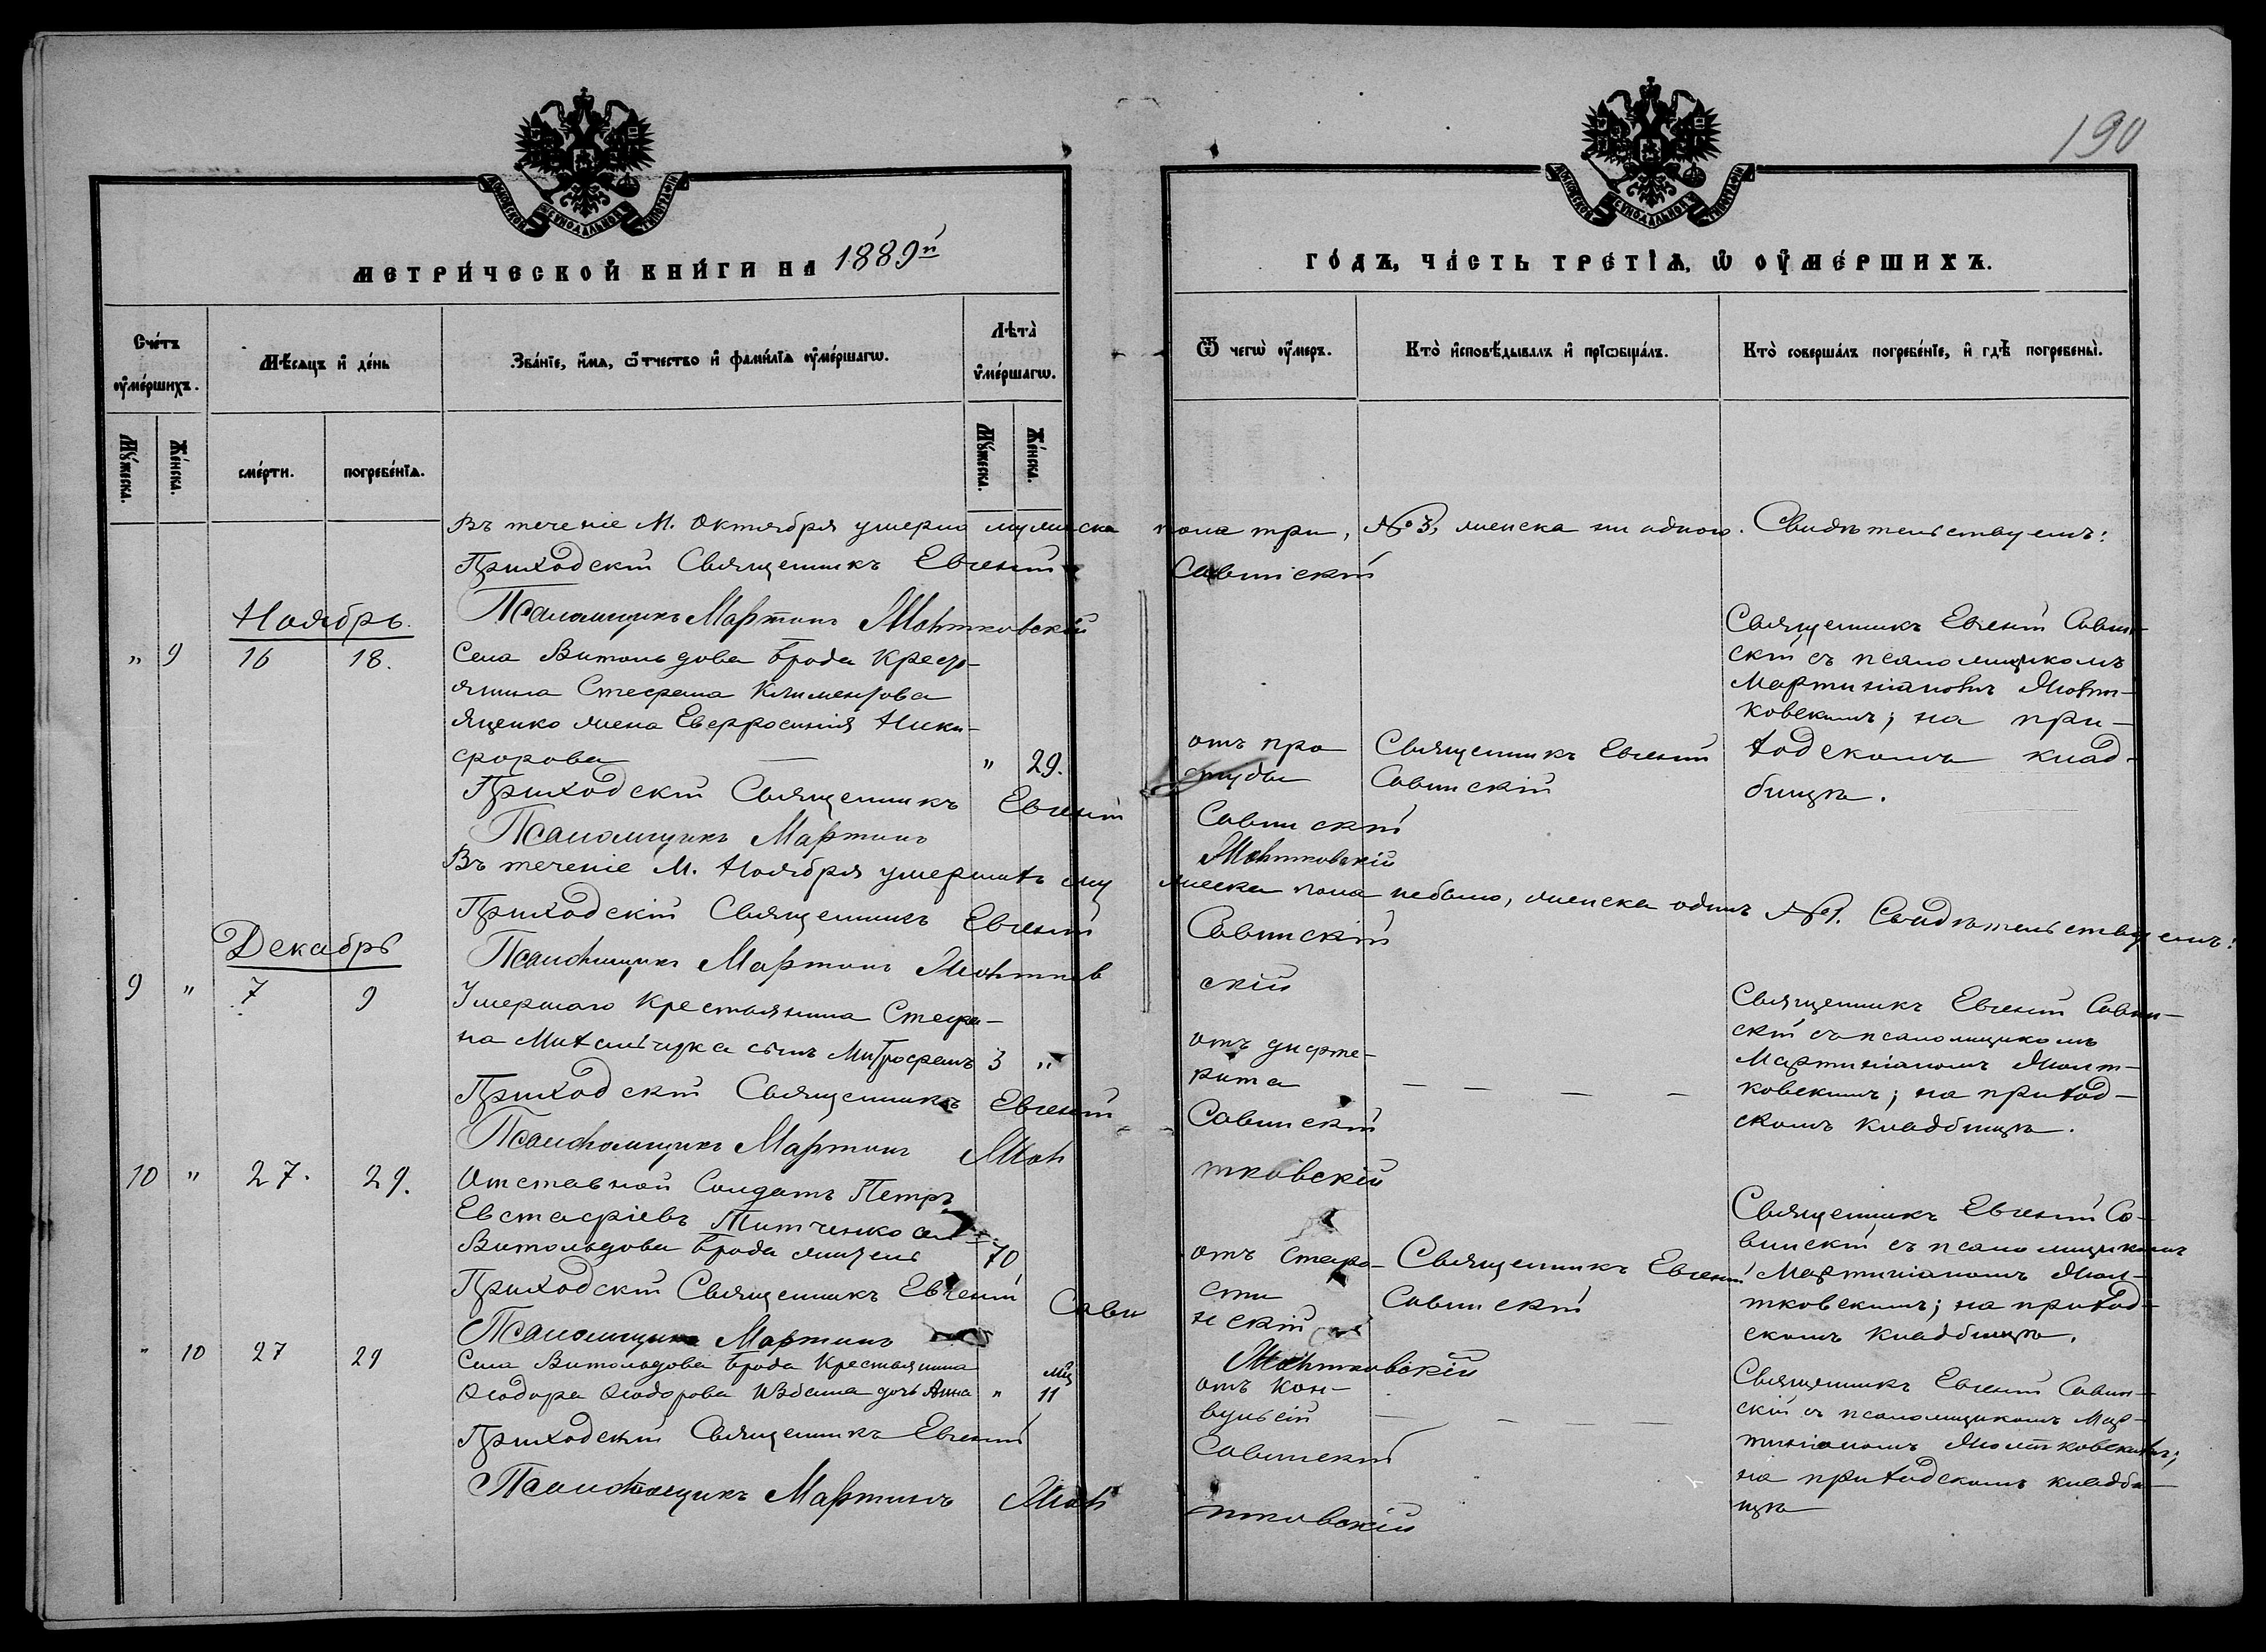 190
МОСКОВСКОЙ СУНОДАЛЬНОЙ ТИПОГРАФІИ
МОСКОВСКОЙ СУНОДАЛЬНОЙ ТИПОГРАФІИ
МЕТРИ́ЧЕСКОЙ КНИ́ГИ НА 1889й
ГО́ДЪ, ЧА́СТЬ ТРЕ́ТІѦ, Ѡ҆ ОУ҆МЕ́РШИХЪ.
Сче́тъ оу҆ме́ршихъ.
Мѣ́сѧцъ и҆ де́нь
Зва́нїе, и҆́мѧ, ѻ҆́тчество и҆ фами́лїѧ оу҆ме́ршагѡ.
Лѣ́та оу҆ме́ршагѡ.
Ѿ чегѡ̀ оу҆́меръ.
Кто̀ и҆сповѣ́дывалъ и҆ прїѡбща́лъ.
Кто̀ соверша́лъ погребе́нїе, и҆ гдѣ̀ погребены̀.
Мꙋ́жеска.
Же́нска.
сме́рти.
погребе́нїѧ.
Мꙋ́жеска.
Же́нска.
Въ теченіе М. Октября умерло мужеска пола три, № 3, женска ни одного. Свидѣтельствуемъ:
Приходскій Священникъ Евгеній Савинскій
Псаломщикъ Мартинъ Жолтковскій
Ноябрь.
" 9 16 18.
Села Витольдова Брода Крестьянина Стефана Климентова
Яценко жена Евфросинія Никифорова
" 29.
отъ простуды
Священникъ Евгеній
Савинскій
Священникъ Евгеній Савинскій съ псаломщикомъ
Мартиніаномъ Жолтковскимъ; на приходскомъ кладбищѣ.
Приходскій Священникъ Евгеній Савинскій
Псаломщикъ Мартинъ Жолтковскій
Въ теченіе М. Ноября умершихъ мужеска пола небыло, женска одинъ № 1. Свидѣтельствуемъ:
Приходскій Священникъ Евгеній Савинскій
Псаломщикъ Мартинъ Жолтковскій
Декабрь
9 " 7 9
Умершаго Крестьянина Стефана Михальчука сынъ Митрофанъ 3 "
отъ дифтерита
— — — —
Священникъ Евгеній Савинскій съ псаломщикомъ
Мартиніаномъ Жолтковскимъ; на приходскомъ кладбищѣ.
Приходскій Священникъ Евгеній Савинскій
Псаломщикъ Мартинъ Жолтковскій
10 " 27. 29.
Отставной Солдатъ Петръ
Евстафіевъ Титченко
Витольдова Брода житель 70
отъ старости
Священникъ Евгеній
Савинскій
Священникъ Евгеній Савинскій съ псаломщикомъ
Мартиніаномъ Жолтковскимъ; на приходскомъ кладбищѣ.
Приходскій Священникъ Евгеній Савинскій
Псаломщикъ Мартинъ Жолтковскій
" 10 27 29
Села Витольдова Брода Крестьянина
Ѳеодора Ѳеодорова дочь Анна " 11 мц
отъ конвульсій
— — — —
Священникъ Евгеній Савинскій съ псаломщикомъ Мартиніаномъ Жолтковскимъ;
на приходскомъ кладбищѣ
Приходскій Священникъ Евгеній Савинскій
Псаломщикъ Мартинъ Жолтковскій